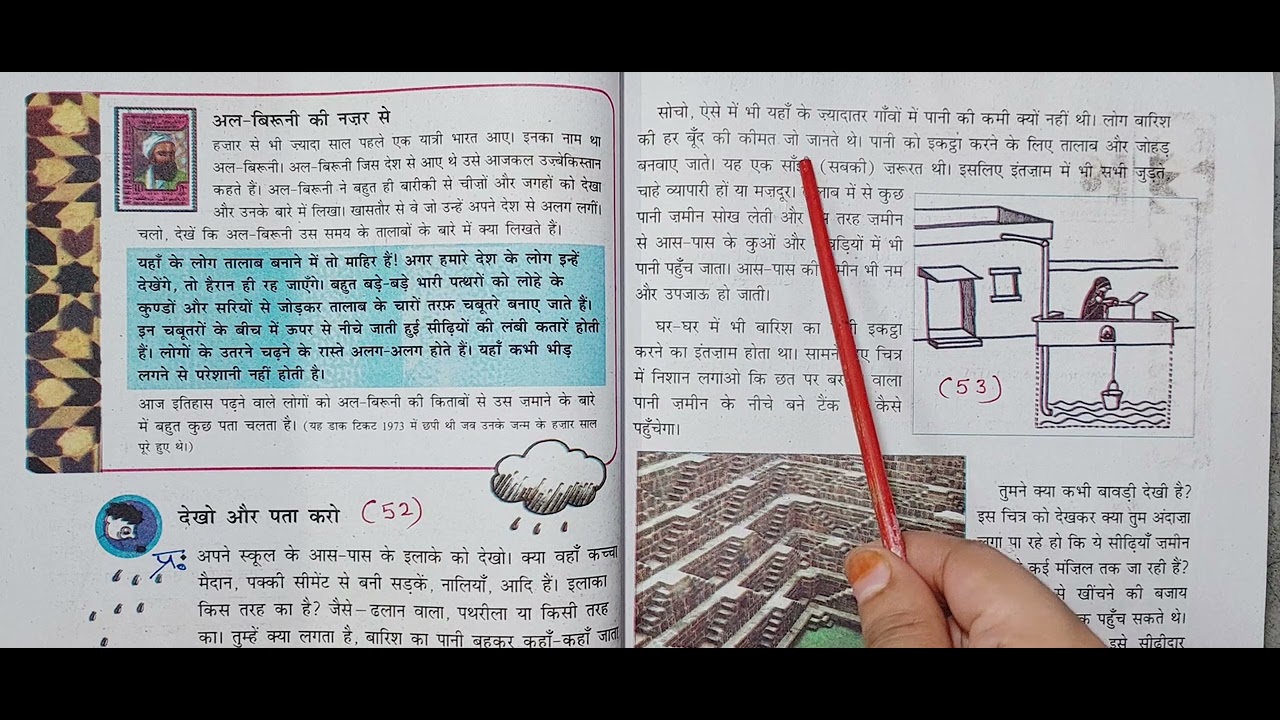 अल-बिरूनी की नज़र से
हजार से भी ज्यादा साल पहले एक यात्री भारत आए। इनका नाम था
अल-बिरूनी। अल-बिरूनी जिस देश से आए थे उसे आजकल उज़्बेकिस्तान
कहते हैं। अल-बिरूनी ने बहुत ही बारीकी से चीजों और जगहों को देखा
और उनके बारे में लिखा। खासतौर से वे जो उन्हें अपने देश से अलग लगीं।
चलो, देखें कि अल-बिरूनी उस समय के तालाबों के बारे में क्या लिखते हैं।
यहाँ के लोग तालाब बनाने में तो माहिर हैं! अगर हमारे देश के लोग इन्हें
देखेंगे, तो हैरान ही रह जाएँगे। बहुत बड़े-बड़े भारी पत्थरों को लोहे के
कुण्डों और सरियों से जोड़कर तालाब के चारों तरफ़ चबूतरे बनाए जाते हैं।
इन चबूतरों के बीच में ऊपर से नीचे जाती हुई सीढ़ियों की लंबी कतारें होती
हैं। लोगों के उतरने चढ़ने के रास्ते अलग-अलग होते हैं। यहाँ कभी भीड़
लगने से परेशानी नहीं होती है।
आज इतिहास पढ़ने वाले लोगों को अल-बिरूनी की किताबों से उस ज़माने के बारे
में बहुत कुछ पता चलता है। (यह डाक टिकट 1973 में छपी थी जब उनके जन्म के हजार साल
पूरे हुए थे।)
देखो और पता करो (52)
प्र: अपने स्कूल के आस-पास के इलाके को देखो। क्या वहाँ कच्चा
मैदान, पक्की सीमेंट से बनी सड़कें, नालियाँ, आदि हैं। इलाका
किस तरह का है? जैसे– ढलान वाला, पथरीला या किसी तरह
का। तुम्हें क्या लगता है, बारिश का पानी बहकर कहाँ-कहाँ जाता
सोचो, ऐसे में भी यहाँ के ज्यादातर गाँवों में पानी की कमी क्यों नहीं थी। लोग बारिश
की हर बूँद की कीमत जो जानते थे। पानी को इकट्ठा करने के लिए तालाब और जोहड़
बनवाए जाते। यह एक (सबकी) ज़रूरत थी। इसलिए इंतज़ाम में भी सभी जुड़ते,
चाहे व्यापारी हों या मजदूर। में से कुछ
पानी ज़मीन सोख लेती और तरह ज़मीन
से आस-पास के कुओं और में भी
पानी पहुँच जाता। आस-पास की भी नम
और उपजाऊ हो जाती।
घर-घर में भी बारिश का इकट्ठा
करने का इंतजाम होता था। सामने चित्र
में निशान लगाओ कि छत पर वाला
पानी ज़मीन के नीचे बने टैंक कैसे
पहुँचेगा।
(53)
तुमने क्या कभी बावड़ी देखी है?
इस चित्र को देखकर क्या तुम अंदाजा
लगा पा रहे हो कि ये सीढ़ियाँ ज़मीन
कई मंज़िल तक जा रही हैं?
से खींचने की बजाय
पहुँच सकते थे।
इसे सीढ़ीदार